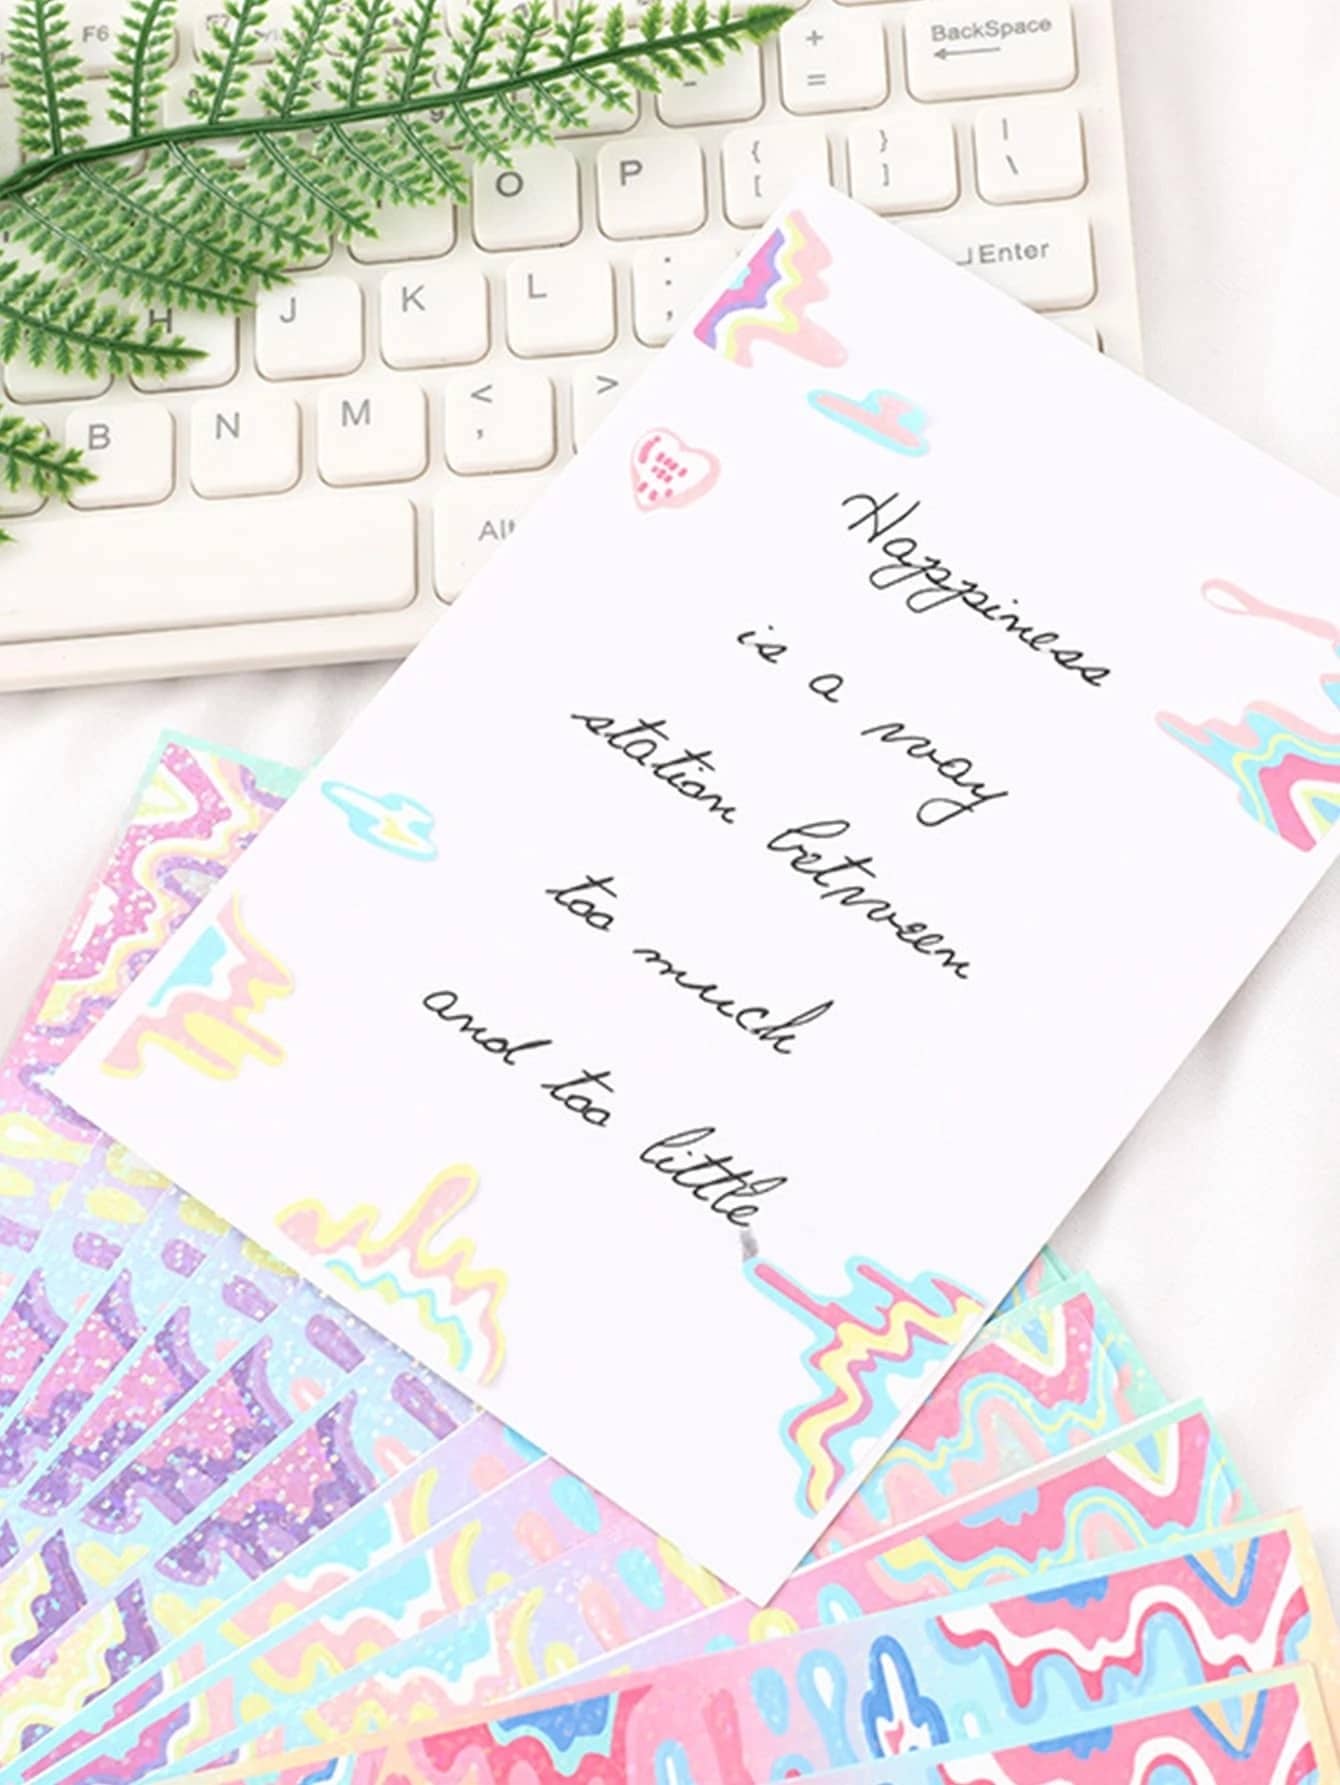 F6
+
=
BackSpace
-
O
P
{
[
}
]
|
\
Enter
H
J
K
L
:
;
B
N
M
<
,
>
Alt
Happiness
is a way
station between
too much
and too little